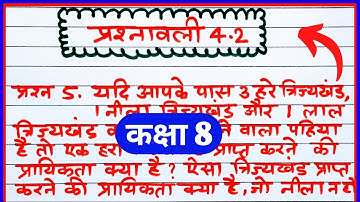 प्रश्नावली 4.2
प्रश्न 5. यदि आपके पास 3 हरे त्रिज्यखंड,
1 नीला त्रिज्यखंड और 1 लाल
त्रिज्यखंड वाला पहिया
है तो एक हरा प्राप्त करने की
प्रायिकता क्या है? ऐसा त्रिज्यखंड प्राप्त
करने की प्रायिकता क्या है, जो नीला न हो
कक्षा 8